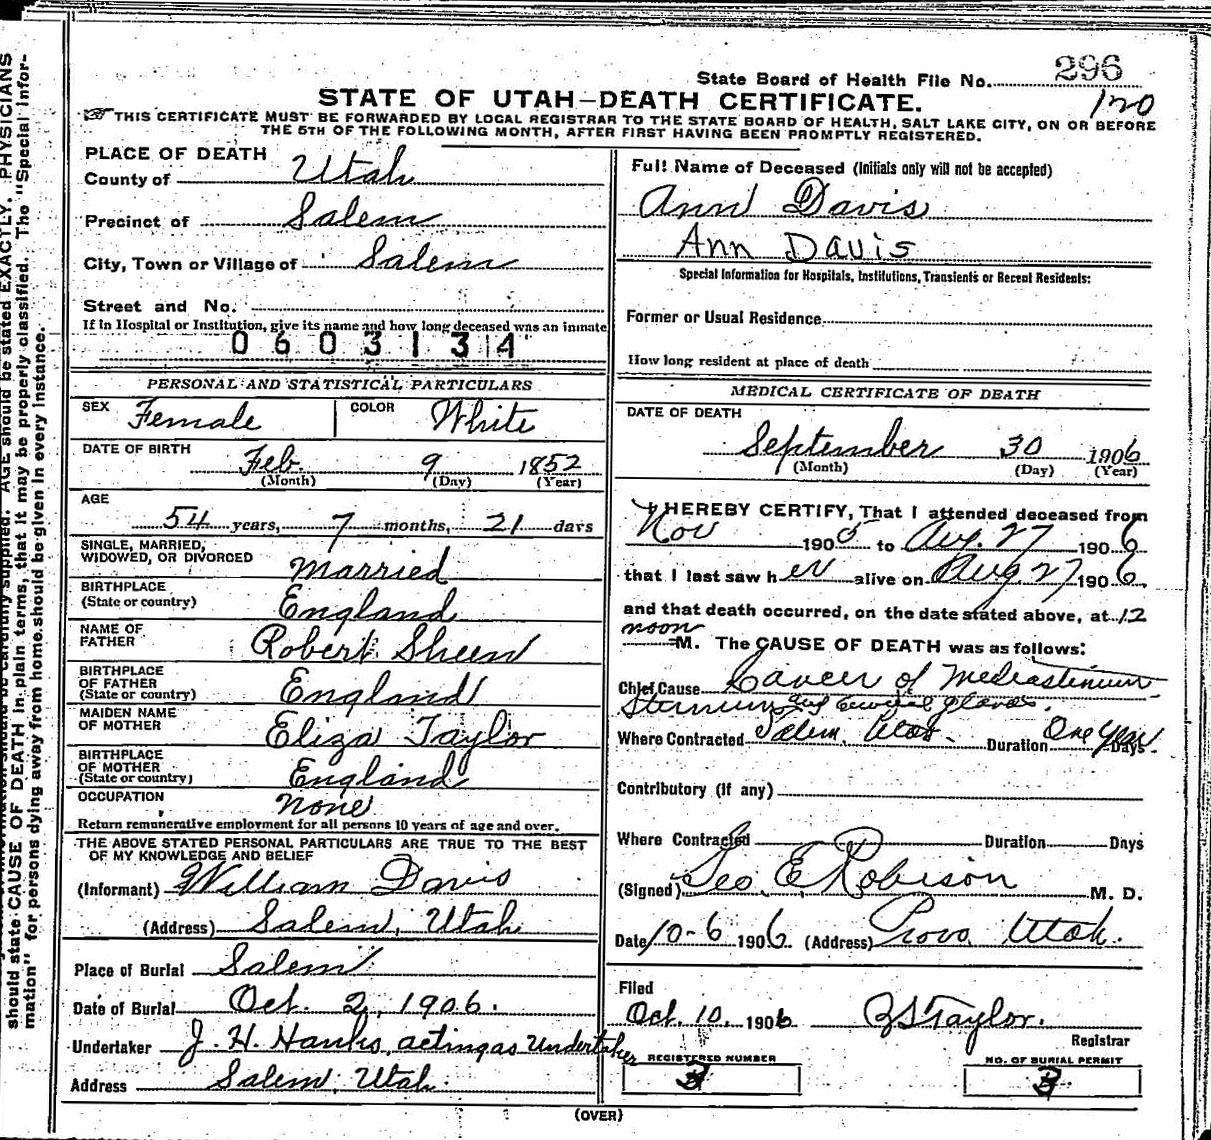 State Board of Health File No. 296
120
STATE OF UTAH—DEATH CERTIFICATE.
THIS CERTIFICATE MUST BE FORWARDED BY LOCAL REGISTRAR TO THE STATE BOARD OF HEALTH, SALT LAKE CITY, ON OR BEFORE
THE 5TH OF THE FOLLOWING MONTH, AFTER FIRST HAVING BEEN PROMPTLY REGISTERED.
PLACE OF DEATH
County of Utah
Precinct of Salem
City, Town or Village of Salem
Street and No.
If in Hospital or Institution, give its name and how long deceased was an inmate
0603134
PERSONAL AND STATISTICAL PARTICULARS
SEX Female COLOR White
DATE OF BIRTH Feb. 9 1852
(Month) (Day) (Year)
AGE
54 years, 7 months, 21 days
SINGLE, MARRIED,
WIDOWED, OR DIVORCED Married
BIRTHPLACE
(State or country) England
NAME OF
FATHER Robert Sheen
BIRTHPLACE
OF FATHER
(State or country) England
MAIDEN NAME
OF MOTHER Eliza Taylor
BIRTHPLACE
OF MOTHER
(State or country) England
OCCUPATION none
Return remunerative employment for all persons 10 years of age and over.
THE ABOVE STATED PERSONAL PARTICULARS ARE TRUE TO THE BEST
OF MY KNOWLEDGE AND BELIEF
(Informant) William Davis
(Address) Salem, Utah
Place of Burial Salem
Date of Burial Oct. 2, 1906.
Undertaker J. H. Hanks, acting as Undertaker
Address Salem, Utah.
Full Name of Deceased (Initials only will not be accepted)
Ann Davis
Ann Davis
Special Information for Hospitals, Institutions, Transients or Recent Residents:
Former or Usual Residence
How long resident at place of death
MEDICAL CERTIFICATE OF DEATH
DATE OF DEATH
September 30 1906
(Month) (Day) (Year)
I HEREBY CERTIFY, That I attended deceased from
Nov 1905 to Aug. 27 1906
that I last saw her alive on Aug 27 1906
and that death occurred, on the date stated above, at 12
noon M. The CAUSE OF DEATH was as follows:
Chief Cause Cancer of Mediastinum
Sternum and Cervical glands.
Where Contracted Salem, Utah. Duration One Year Days.
Contributory (if any)
Where Contracted Duration Days
(Signed) Geo. E. Robison M. D.
Date 10-6 1906. (Address) Provo, Utah.
Filed
Oct. 10, 1906 Taylor.
Registrar
REGISTERED NUMBER NO. OF BURIAL PERMIT
(OVER)
PHYSICIANS
AGE should be stated EXACTLY.
should state CAUSE OF DEATH in plain terms, that it may be properly classified. The "Special Infor-
mation" for persons dying away from home should be given in every instance.